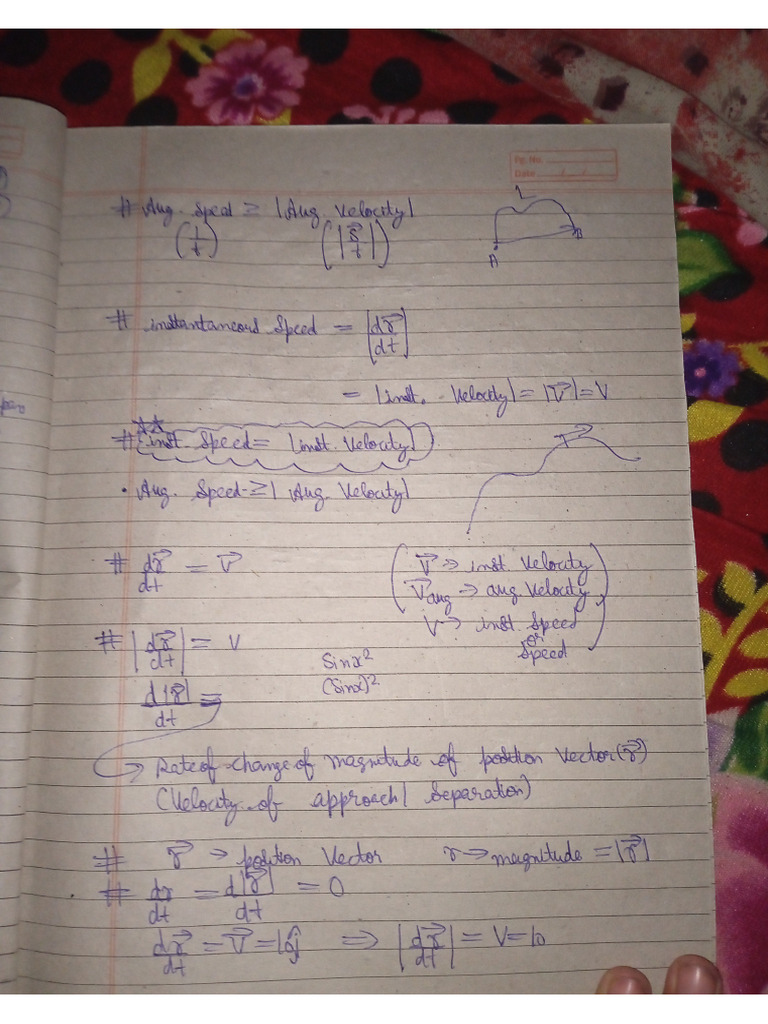 Pg. No.
Date / /
# Avg. Speed ≥ |Avg. Velocity|
(l/t) (|s⃗/t|)
L
A B
# instantaneous Speed = |dr⃗/dt|
= |inst. Velocity| = |V⃗| = V
# inst. Speed = |inst. Velocity|
• Avg. Speed ≥ | Avg. Velocity|
# dr⃗/dt = V⃗
(V⃗ → inst. Velocity
V⃗avg → avg. Velocity
V → inst. Speed
or
Speed)
# |dr⃗/dt| = V
Sinx²
(Sinx)²
d|r⃗|/dt =
→ Rate of change of magnitude of position Vector (r⃗)
(Velocity of approach/ Separation)
# r⃗ → position Vector r → magnitude = |r⃗|
# dr/dt = d|r⃗|/dt = 0
dr⃗/dt = V⃗ = 10ĵ ⇒ |dr⃗/dt| = V = 10